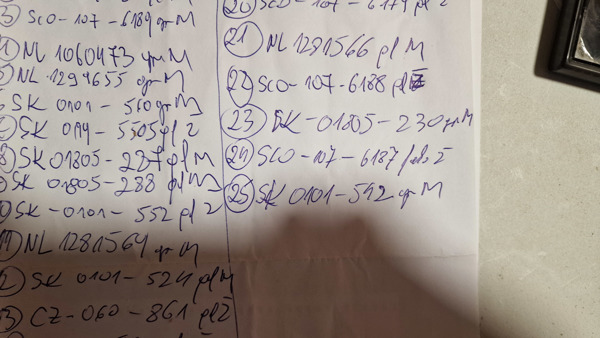 SCO-107-6189 grM
NL 1060473 grM
NL 1294655 grM
SK 0101 - 510 grM
SK 0114 - 5505 pl Ž
SK 01805 - 227 plM
SK 01805 - 288 plM
SK - 0101 - 552 pl Ž
11 NL 1281564 grM
12 SK 0101 - 524 plM
13 CZ - 060 - 861 plŽ
20 SCO - 107 - 6179 pl Ž
21 NL 1281566 pl M
22 SCO - 107 - 6188 plŽ
23 SK - 01805 - 230 grM
24 SCO - 107 - 6187 Ž
25 SK 0101 - 592 grM